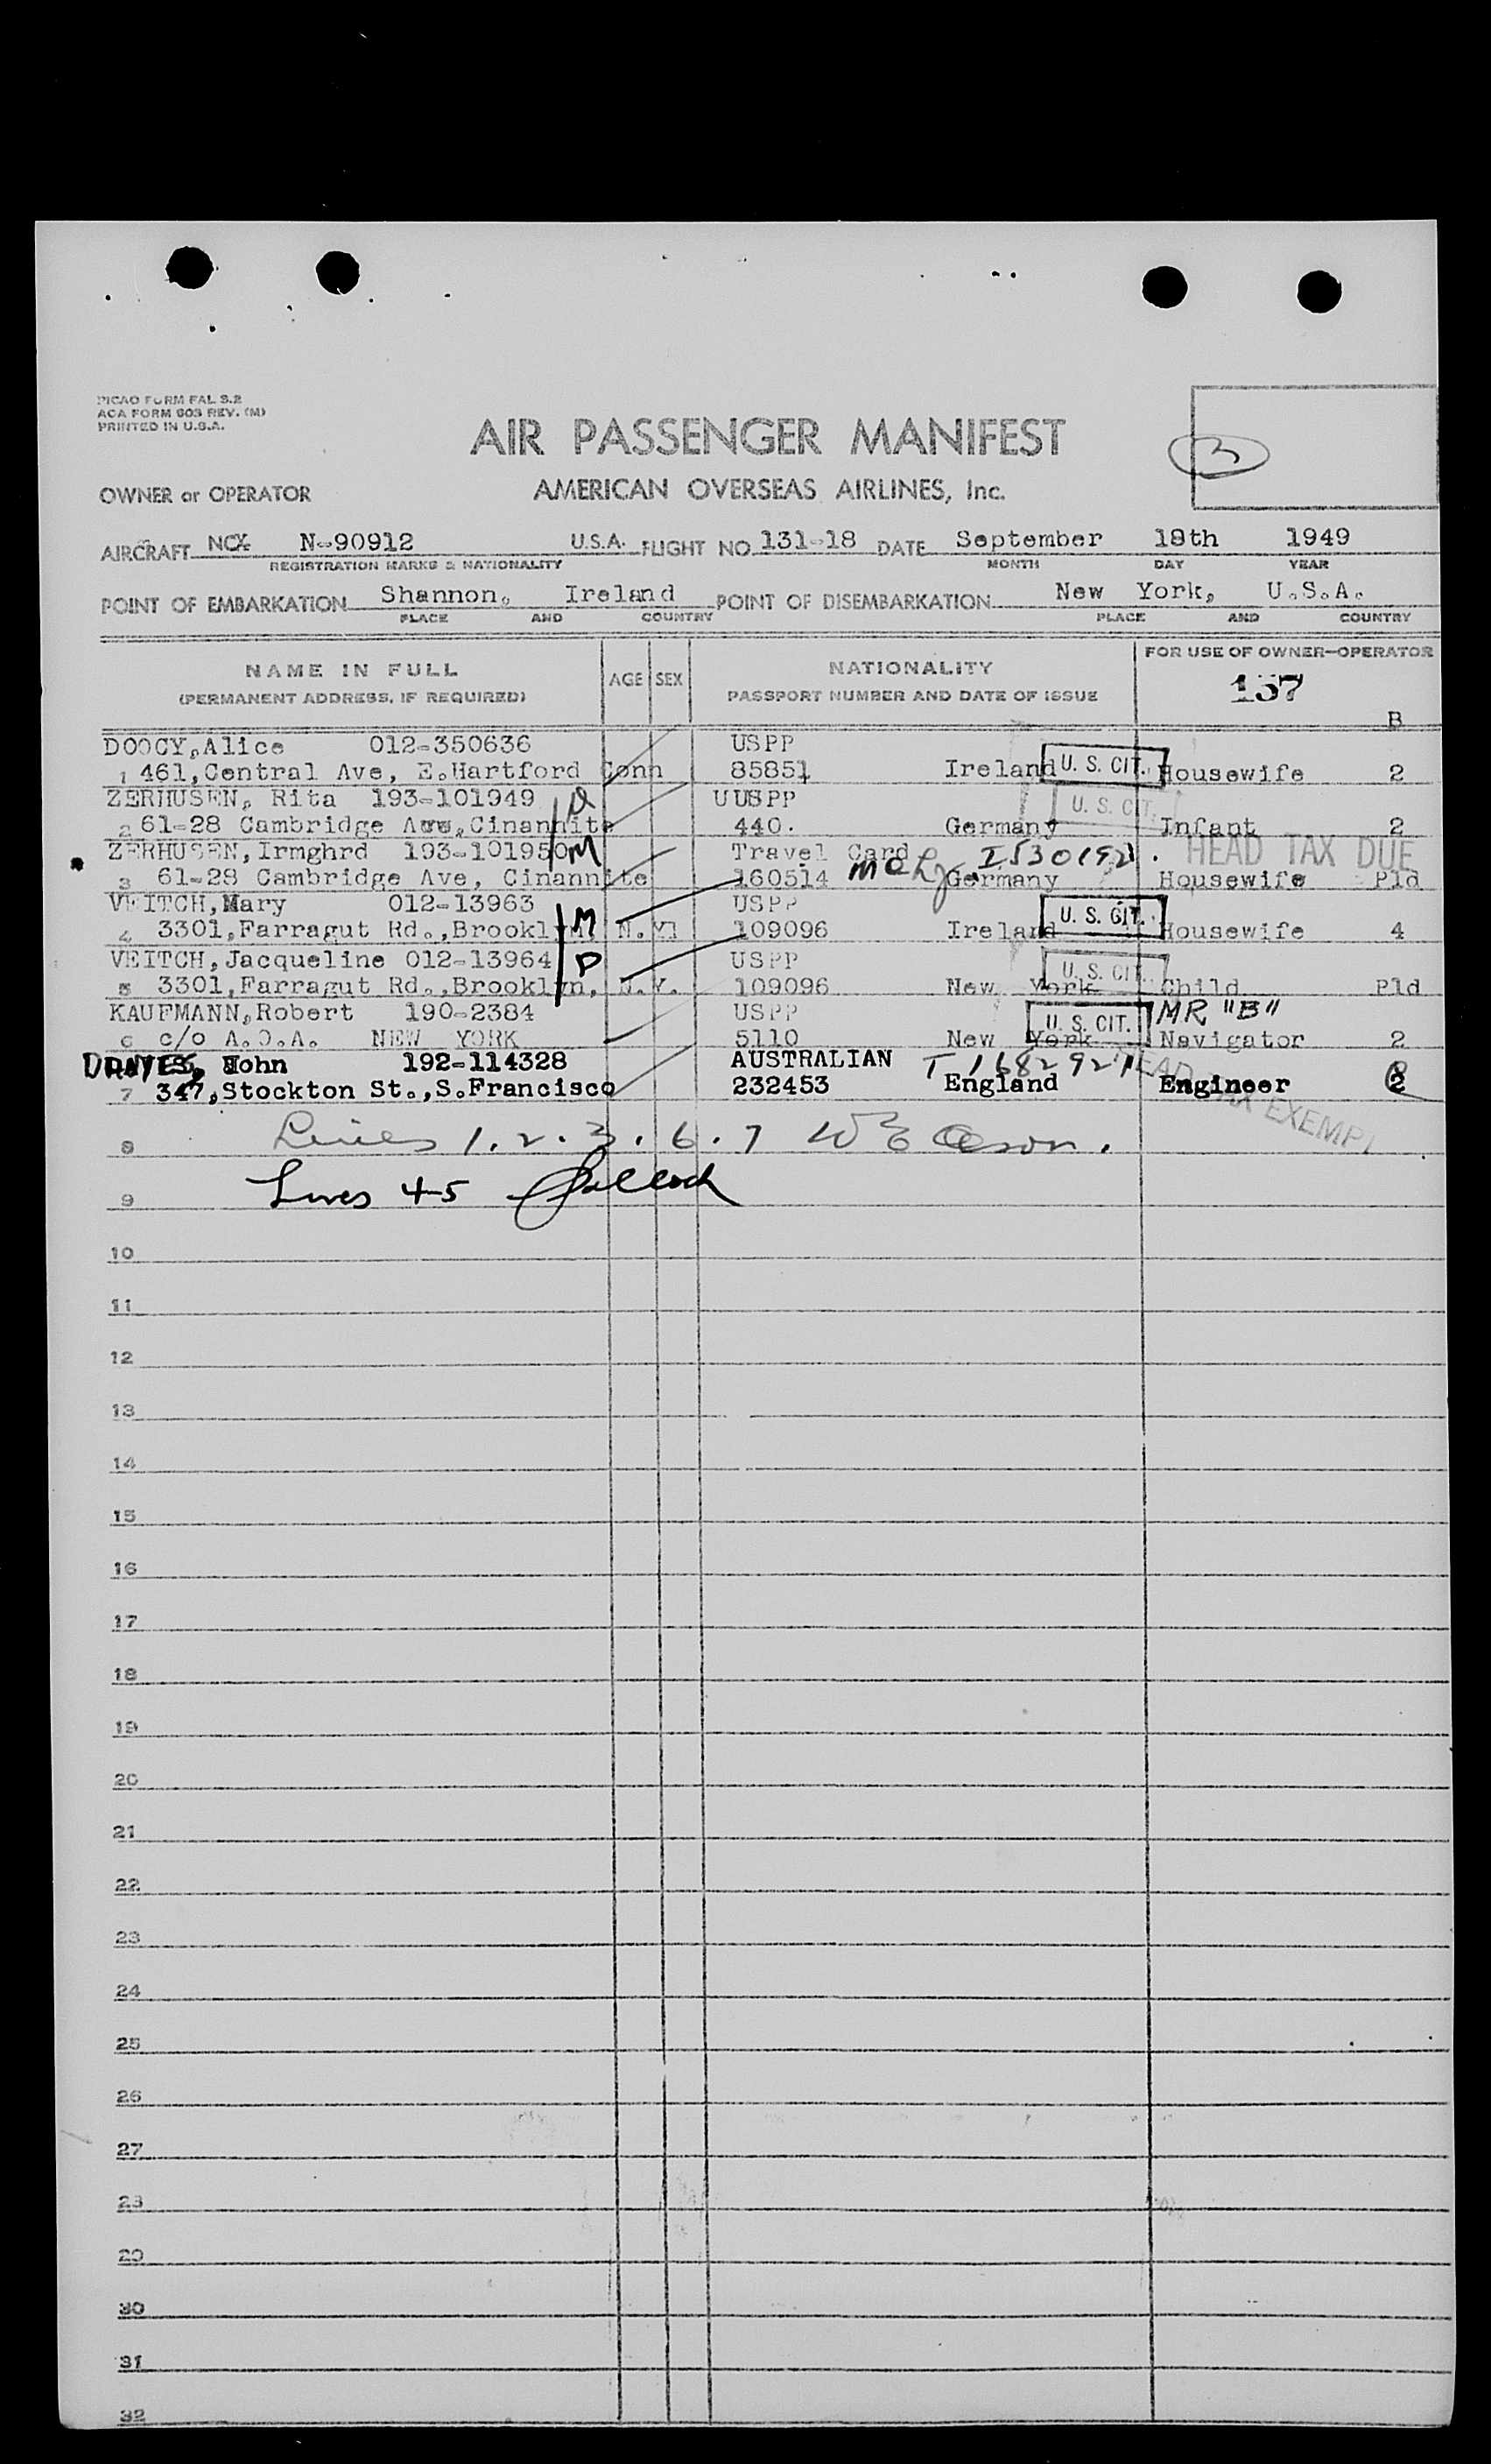 PICAO FORM FAL S.2
ACA FORM 603 REV. (M)
PRINTED IN U.S.A.
AIR PASSENGER MANIFEST
3
OWNER or OPERATOR AMERICAN OVERSEAS AIRLINES, Inc.
AIRCRAFT NC N-90912 U.S.A. FLIGHT NO. 131-18 DATE September 19th 1949
REGISTRATION MARKS & NATIONALITY MONTH DAY YEAR
POINT OF EMBARKATION Shannon, Ireland POINT OF DISEMBARKATION New York, U.S.A.
PLACE AND COUNTRY PLACE AND COUNTRY
NAME IN FULL AGE SEX NATIONALITY FOR USE OF OWNER-OPERATOR
(PERMANENT ADDRESS, IF REQUIRED) PASSPORT NUMBER AND DATE OF ISSUE 137
B
DOOCY,Alice 012-350636 USPP
1 461,Central Ave, E.Hartford Conn 85851 Ireland U. S. CIT. Housewife 2
ZERHUSEN, Rita 193-101949 UUSPP
2 61-28 Cambridge Ave,Cinannite 440. Germany U. S. CIT. Infant 2
ZERHUSEN,Irmghrd 193-101950 M Travel Card I530192 HEAD TAX DUE
3 61-28 Cambridge Ave, Cinannite 160514 Germany Housewife Pld
VEITCH,Mary 012-13963 M USPP
4 3301,Farragut Rd.,Brooklyn, N.Y. 109096 Ireland U. S. CIT. Housewife 4
VEITCH,Jacqueline 012-13964 P USPP
5 3301,Farragut Rd.,Brooklyn, N.Y. 109096 New York U. S. CIT. Child Pld
KAUFMANN,Robert 190-2384 USPP MR "B"
6 c/o A.O.A. NEW YORK 5110 New York U. S. CIT. Navigator 2
John 192-114328 AUSTRALIAN T 1682921 HEAD TAX EXEMPT
7 347,Stockton St.,S.Francisco 232453 England Engineer 2
8 Lines 1. 2. 3. 6. 7 W E Olson.
9 Lines 4-5
10
11
12
13
14
15
16
17
18
19
20
21
22
23
24
25
26
27
28
29
30
31
32